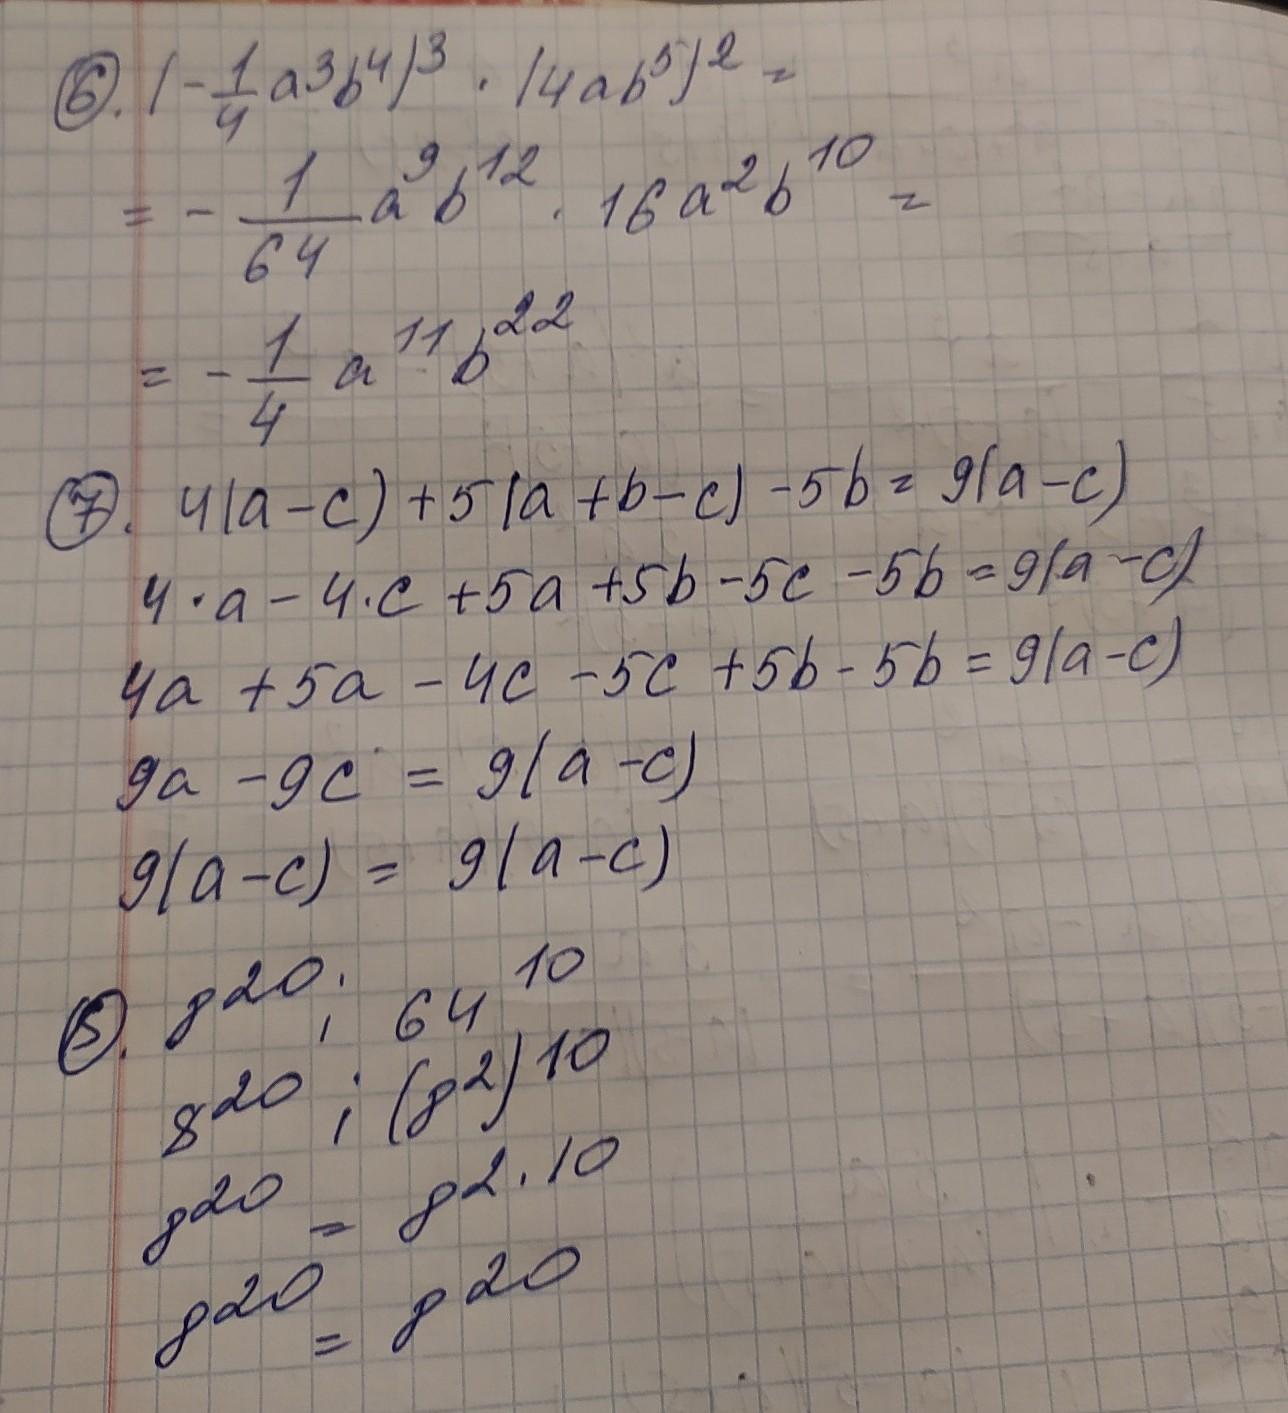 6. (-1/4 a³b⁴)³ · (4ab⁵)² =
= - 1/64 a⁹b¹² · 16a²b¹⁰ =
= - 1/4 a¹¹b²²
7. 4(a-c)+5(a+b-c)-5b=9(a-c)
4·a-4·c+5a+5b-5c-5b=9(a-c)
4a+5a-4c-5c+5b-5b=9(a-c)
9a-9c=9(a-c)
9(a-c)=9(a-c)
5. 8²⁰; 64¹⁰
8²⁰; (8²)¹⁰
8²⁰=8²·¹⁰
8²⁰=8²⁰